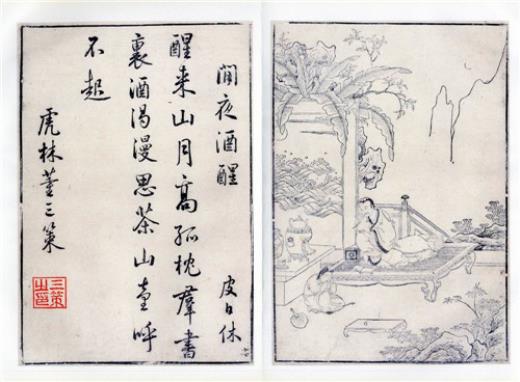 閒夜酒醒
皮日休
醒来山月高孤枕羣書
裏酒渴漫思茶山童呼
不起
虎林董三策
三策之印